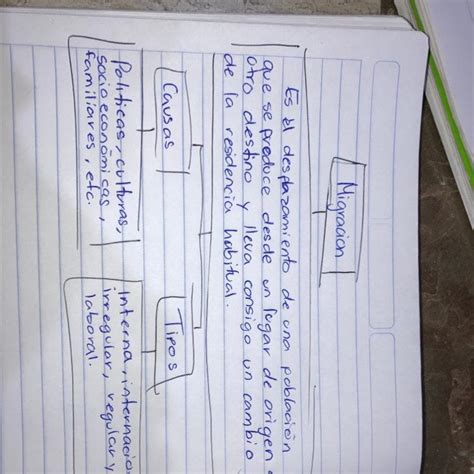 Migración
Es el desplazamiento de una población
que se produce desde un lugar de origen a
otro destino y lleva consigo un cambio
de la residencia habitual.
Causas
Tipos
Politicas, culturas,
socioeconómicas,
familiares, etc.
Interna, internacio
irregular, regular y
laboral.